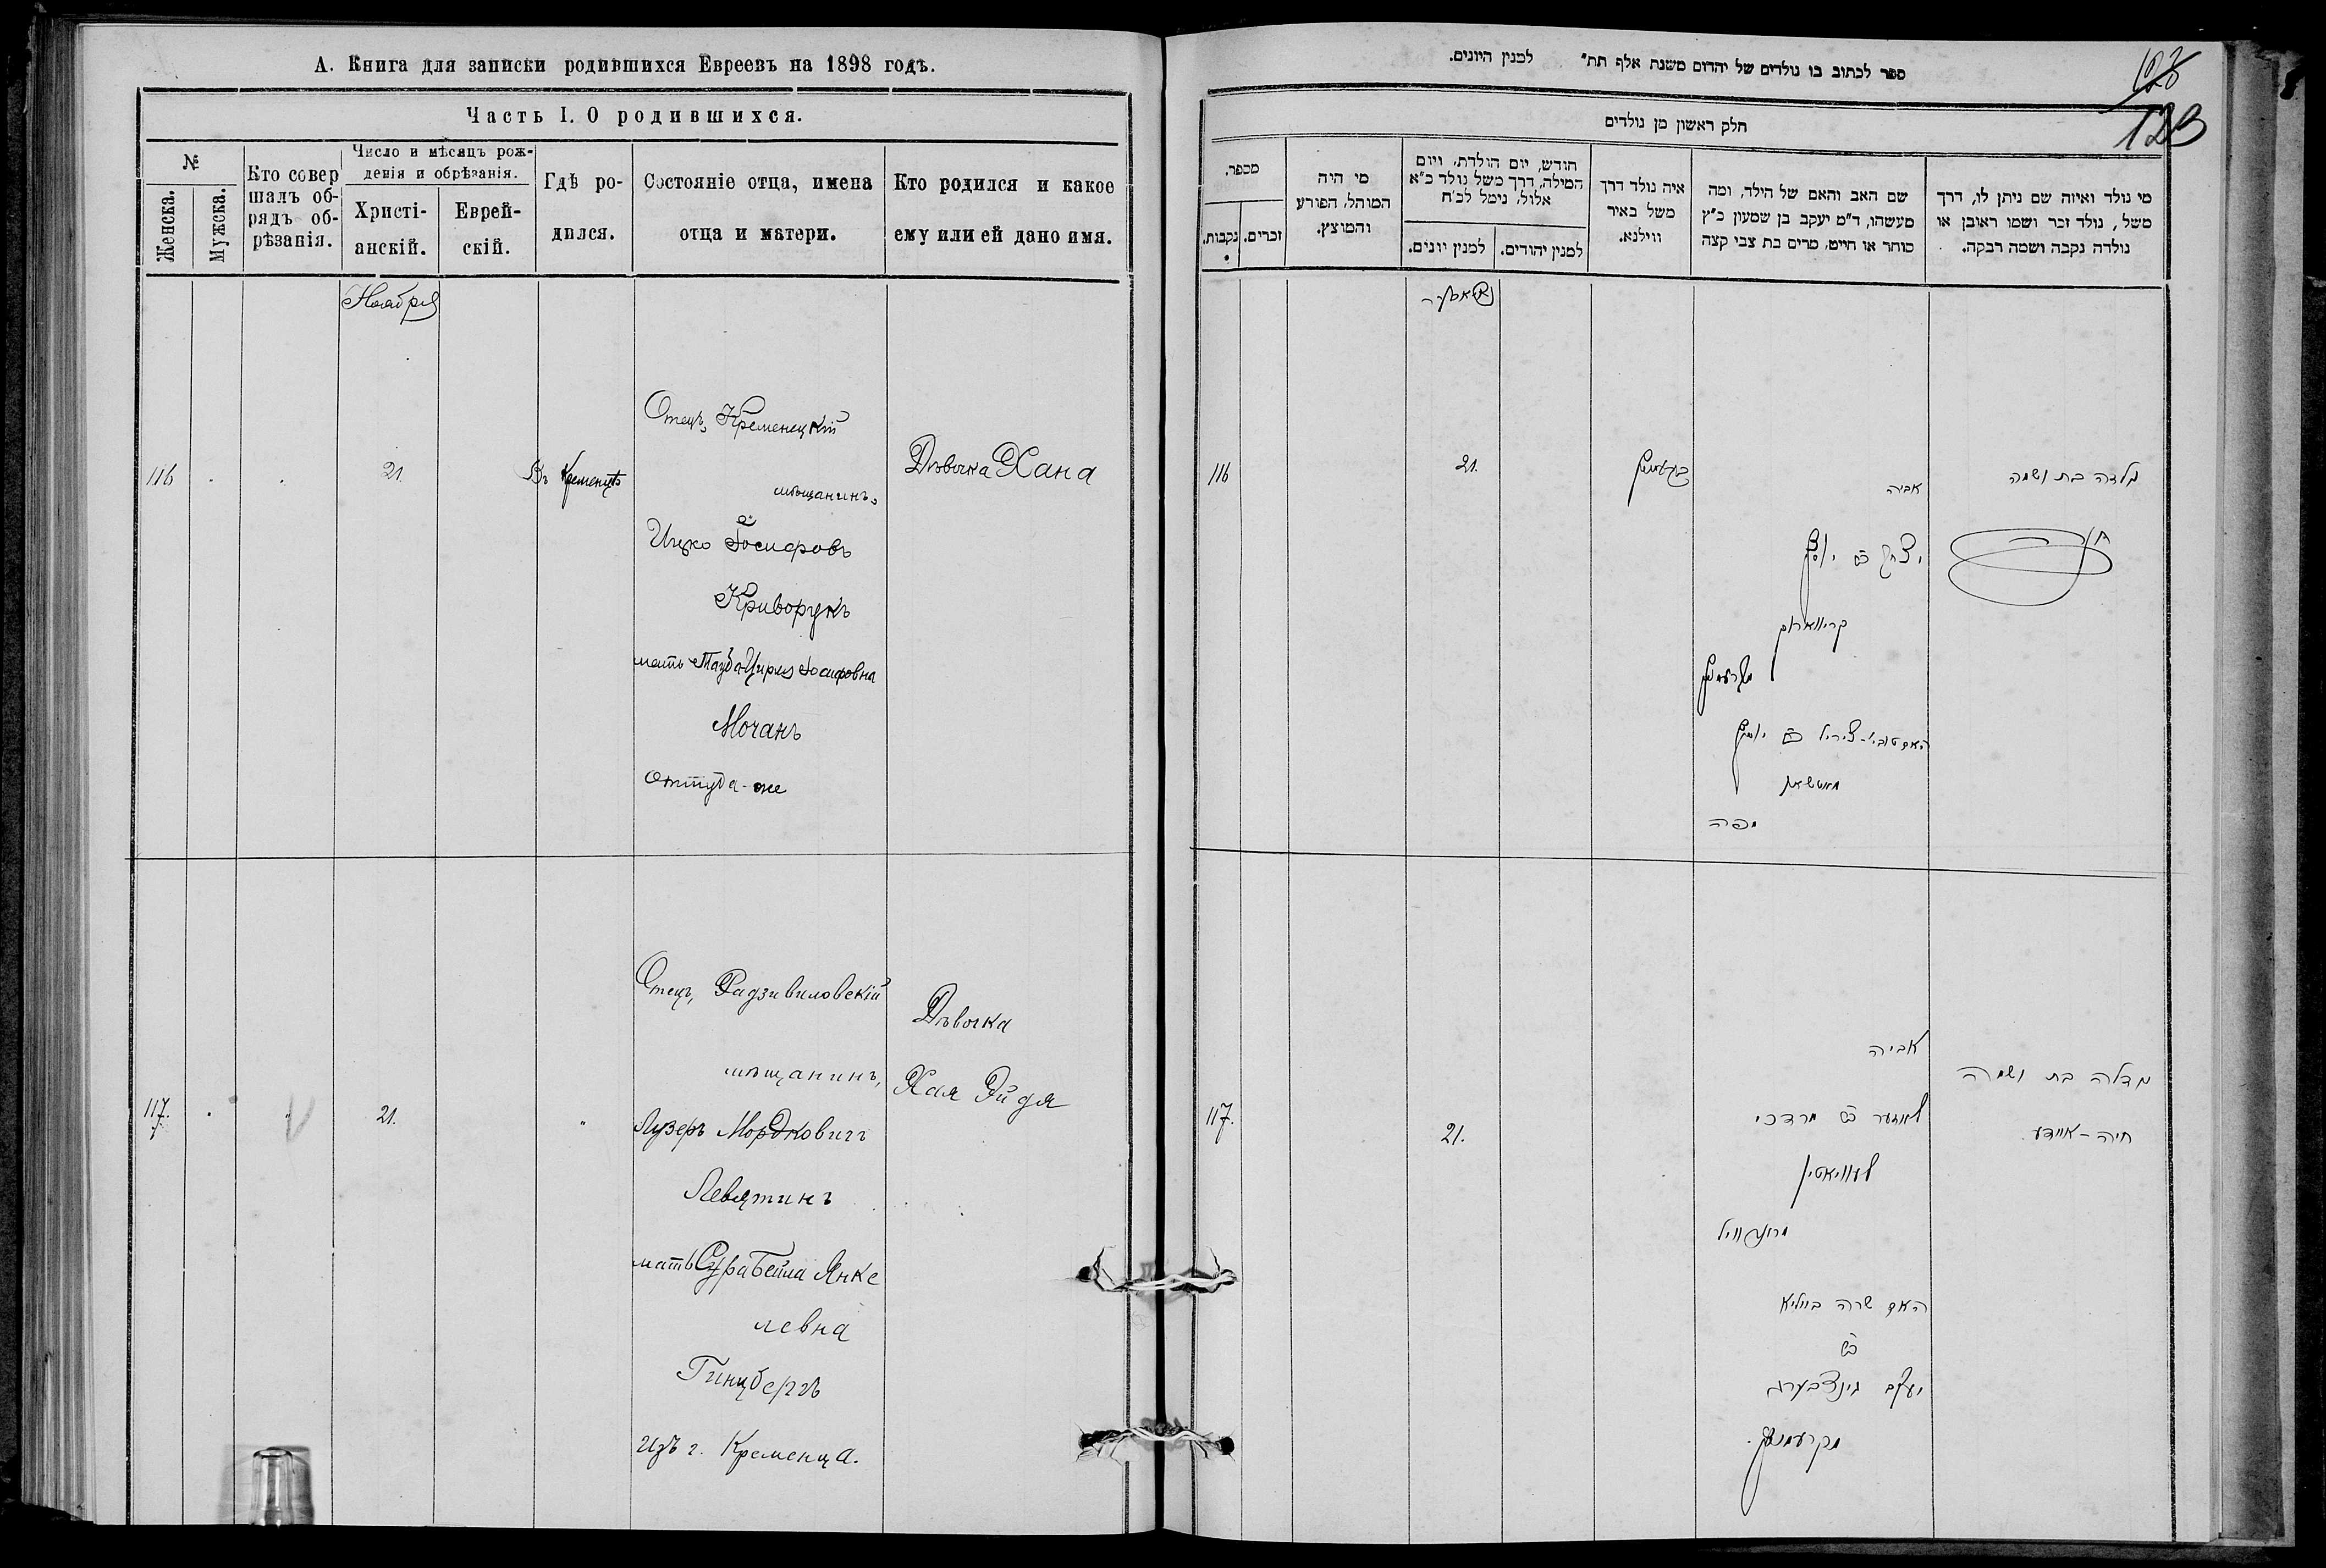 А. Книга для записки родившихся Евреевъ на 1898 годъ.
Часть I. О родившихся.
№
Женска.
Мужска.
Кто совер
шалъ об-
рядъ об-
рѣзанія.
Число и мѣсяцъ рож-
денія и обрѣзанія.
Христі-
анскій.
Еврей-
скій.
Гдѣ ро-
дился.
Состояніе отца, имена
отца и матери.
Кто родился и какое
ему или ей дано имя.
Ноября
116
21.
Въ Кременцѣ
Отецъ, Кременецкій
мѣщанинъ,
Ицко Іосифовъ
Криворукъ
мать Тауба-Цирля Іосифовна
Мочанъ
оттуда-же
Дѣвочка Хана
117.
21.
"
Отецъ, Радзивиловскій
мѣщанинъ,
Лузеръ Мордковичъ
Левятинъ
мать Сура Бейла Янке
левна
Гинцбергъ
изъ г. Кременца.
Дѣвочка
Хая Эйдя
ספר לכתוב בו נולדים של יהדים משנת אלף תת" למנין היונים.
123
חלק ראשון מן נולדים
מספר.
נקבות.
זכרים.
מי היה
המוהל, הפורע
והמוצץ.
חודש, יום הולדת, ויום
המילה, דרך משל נולד כ"א
אלול, נימל לכ"ח
למנין יונים.
למנין יהודים.
איה נולד דרך
משל באיר
ווילנא.
שם האב והאם של הילד, ומה
מעשהו, ד"מ יעקב בן שמעון כ"ץ
סוחר או חייט, מרים בת צבי קצה
מי נולד ואיזה שם ניתן לו, דרך
משל, נולד זכר ושמו ראובן או
נולדה נקבה ושמה רבקה.
116
21.
אביה
יצחק ב"ר יוסף
קריווארוק
מקרעמניץ
האם טובי'-צירל ב"ר יוסף
מאטשאן
מפה
נולדה בת ושמה
חנה
117.
21.
אביה
לאוזער ב"ר מרדכי
לעוויאטין
האם שרה ביילא
ב"ר
יעקב גינצבערג
מקרעמניץ.
נולדה בת ושמה
חיה-איידע